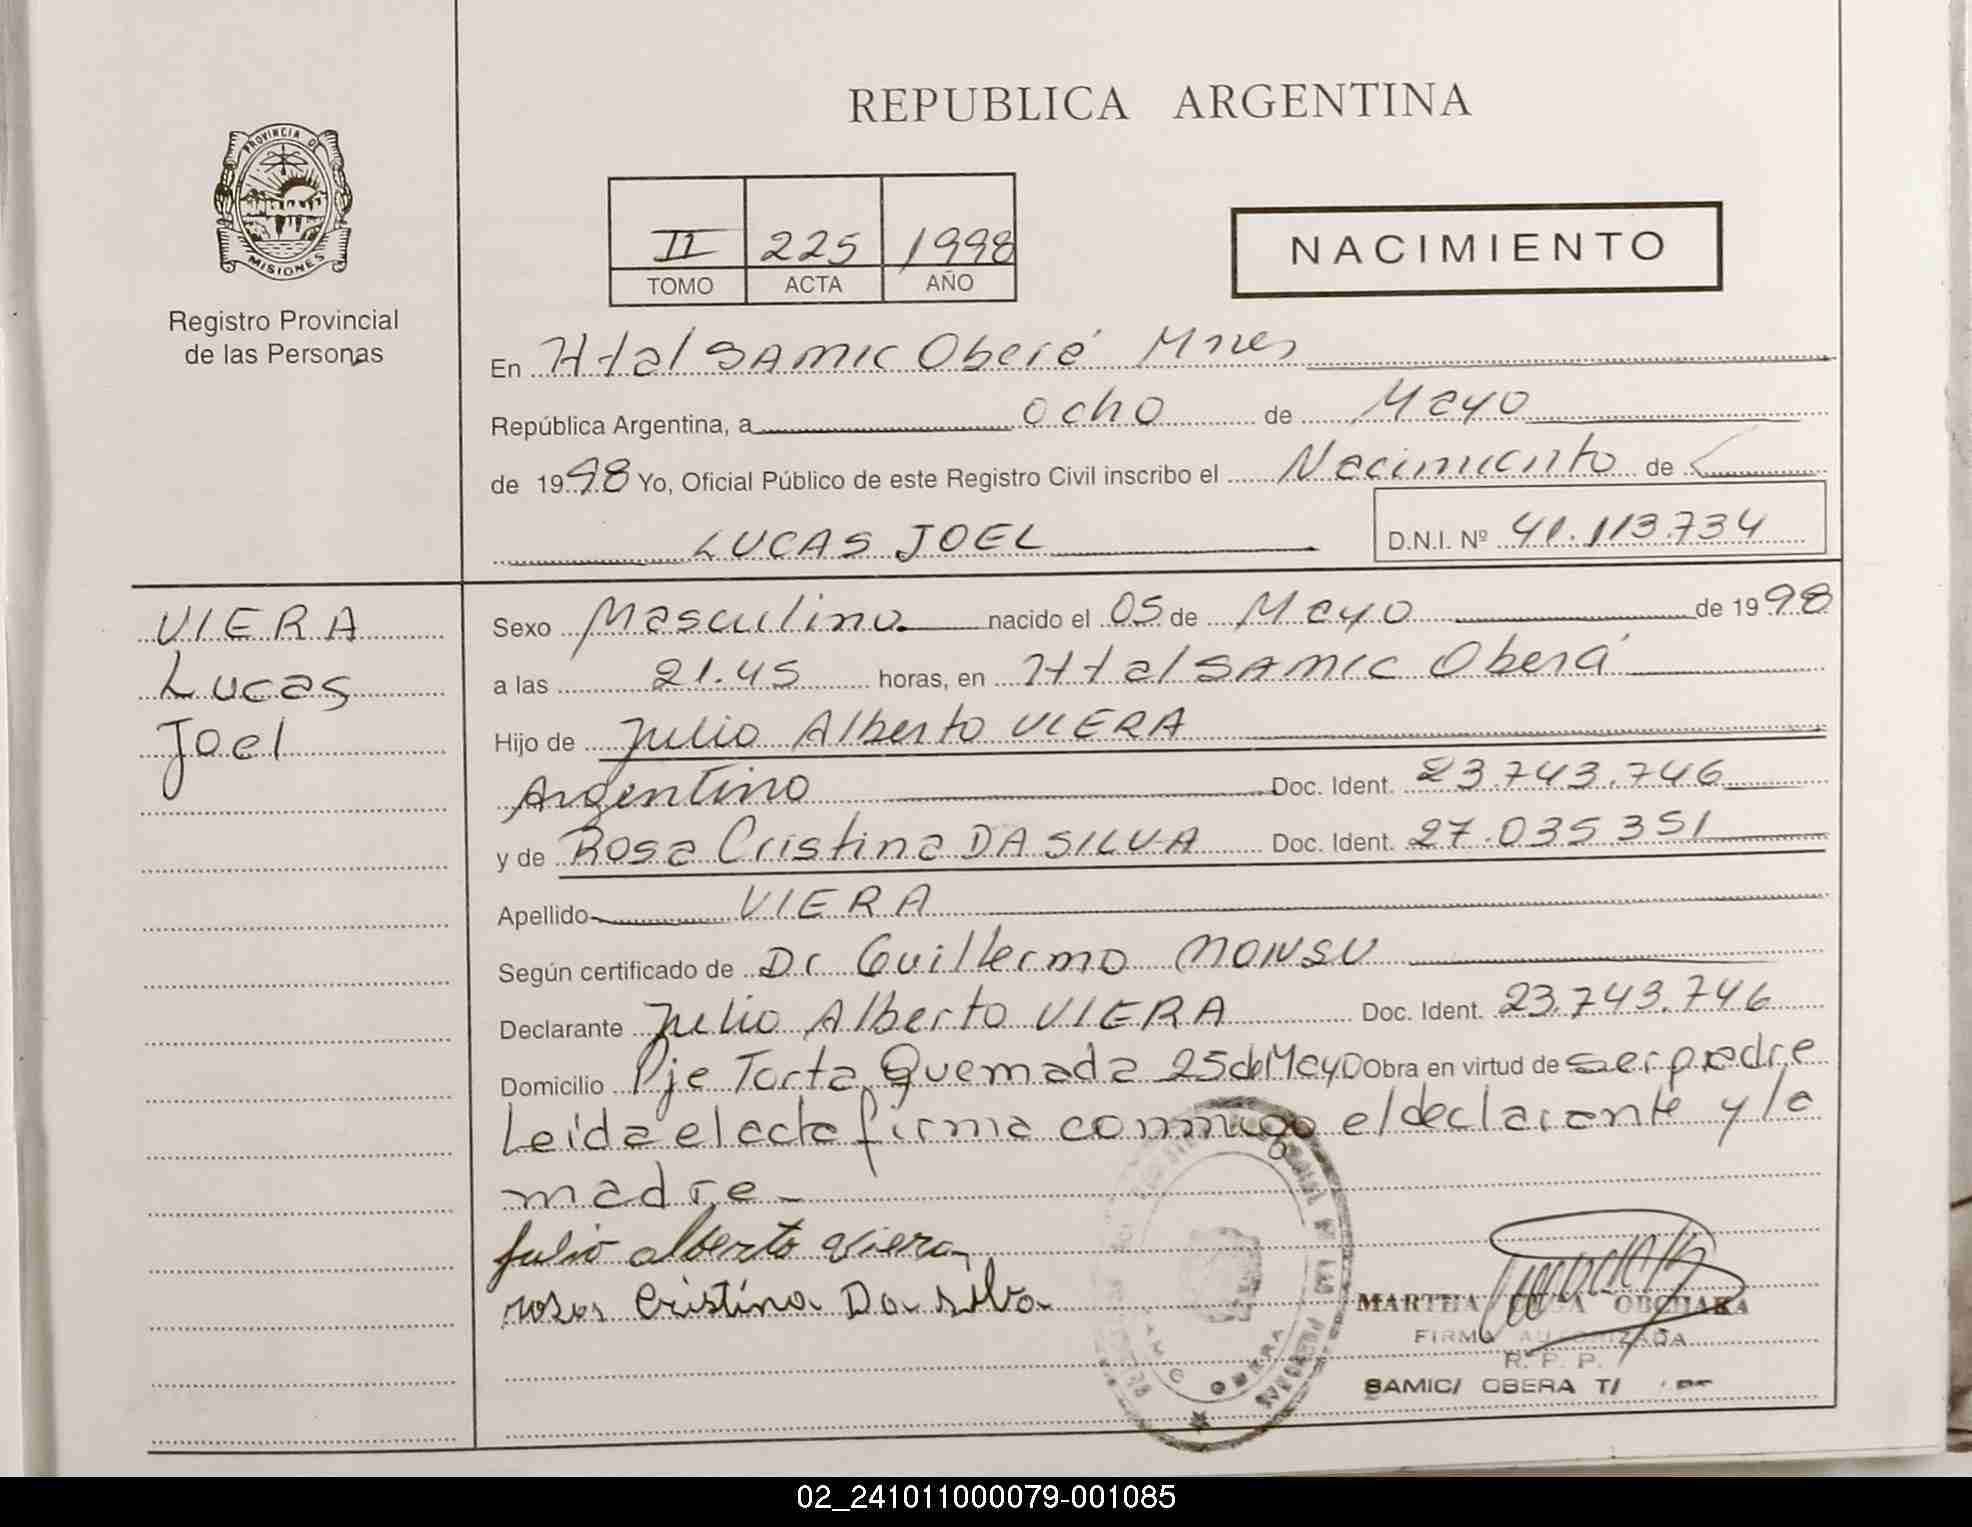 PROVINCIA DE
MISIONES
Registro Provincial
de las Personas
REPUBLICA ARGENTINA
II 225 1998
TOMO ACTA AÑO
NACIMIENTO
En Htal SAMIC Oberá Mnes
República Argentina, a ocho de Mayo
de 1998 Yo, Oficial Público de este Registro Civil inscribo el Nacimiento de
LUCAS JOEL D.N.I. Nº 41.113.734
VIERA
Lucas
Joel
Sexo Masculino nacido el 05 de Mayo de 1998
a las 21.45 horas, en Htal SAMIC Oberá
Hijo de Julio Alberto VIERA
Argentino Doc. Ident. 23.743.746
y de Rosa Cristina DA SILVA Doc. Ident. 27.035351
Apellido VIERA
Según certificado de Dr Guillermo MONSU
Declarante Julio Alberto VIERA Doc. Ident. 23.743.746
Domicilio Pje Torta Quemada 25 de Mayo Obra en virtud de ser padre
Leída el acta firma conmigo el declarante y la
madre_
Julio alberto viera
rosa Cristina Da silva
MARTHA OBCHAKA
FIRMA AUTORIZADA
R. P. P.
SAMIC/ OBERA T/
OBERA
02_241011000079-001085